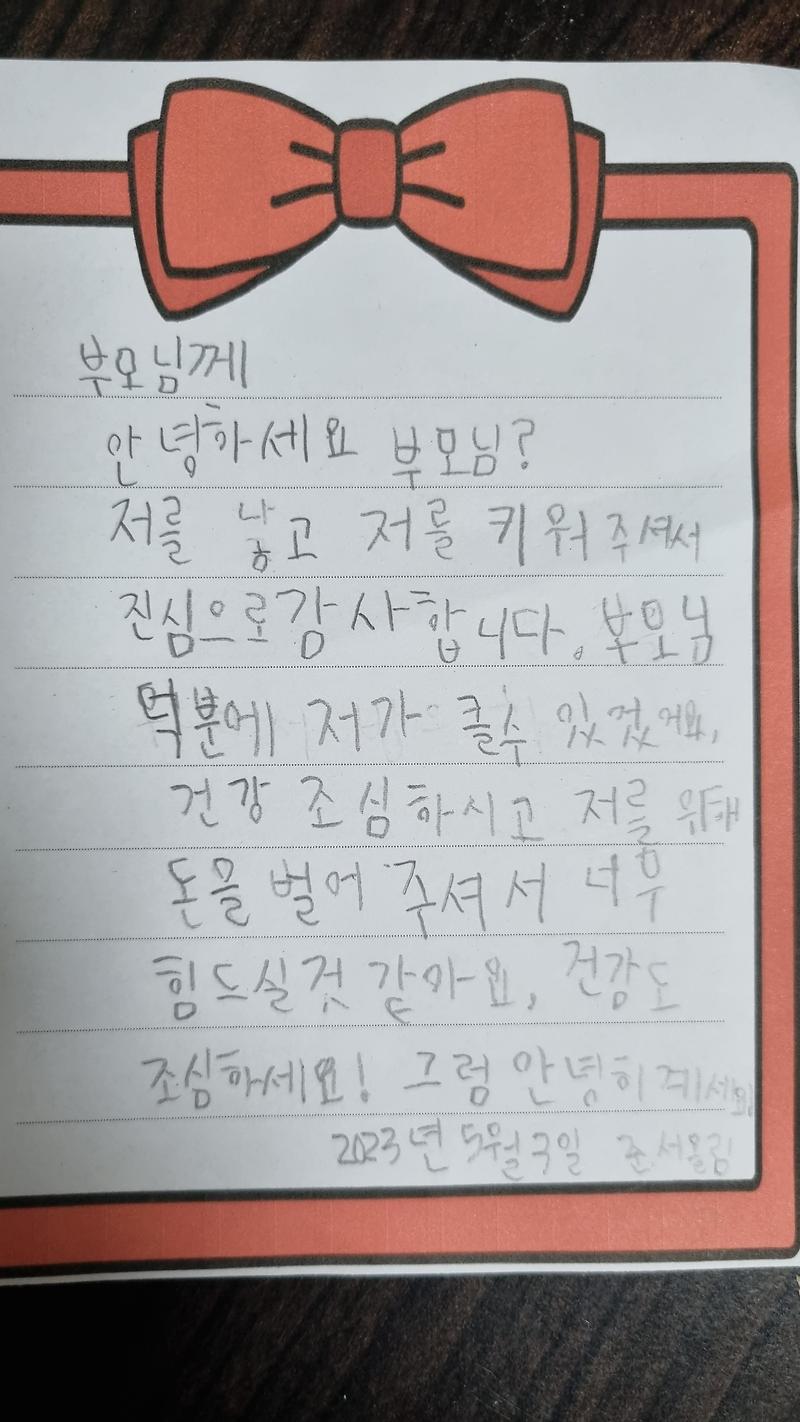 부모님께
안녕하세요 부모님?
저를 낳고 저를 키워주셔서
진심으로감사합니다. 부모님
덕분에 저가 클수 있겠어요,
건강 조심하시고 저를 위해
돈을 벌어 주셔서 너무
힘드실것 같아요, 건강도
조심하세요! 그럼 안녕히 계세요!
2023년 5월 3일 준서올림